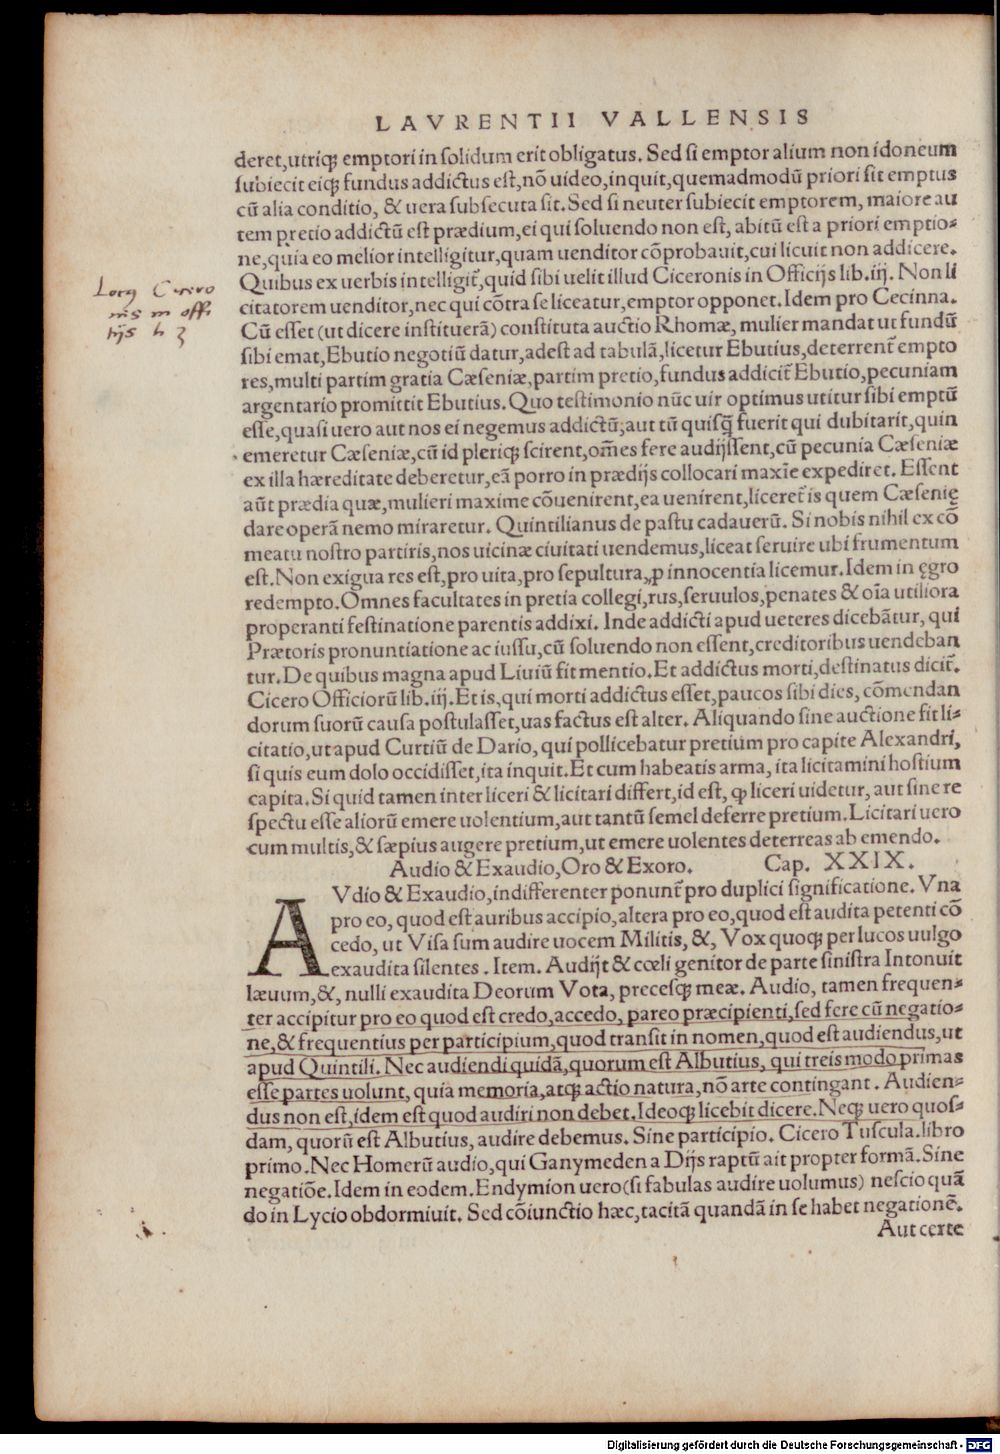 LAVRENTII VALLENSIS
deret, utriqꝫ emptori in solidum erit obligatus. Sed si emptor alium non idoneum
subiecit eiqꝫ fundus addictus est, nõ uideo, inquit, quemadmodũ priori sit emptus
cũ alia conditio, & uera subsecuta sit. Sed si neuter subiecit emptorem, maiore au
tem pretio addictũ est prædium, ei qui soluendo non est, abitũ est a priori emptio-
ne, quia eo melior intelligitur, quam uenditor cõprobauit, cui licuit non addicere.
Quibus ex uerbis intelligit̃, quid sibi uelit illud Ciceronis in Officijs lib. iij. Non li
Locꝰ Cicero
nis in offi
tijs li 3
citatorem uenditor, nec qui cõtra se liceatur, emptor opponet. Idem pro Cecinna.
Cũ esset (ut dicere instituerã) constituta auctio Rhomæ, mulier mandat ut fundũ
sibi emat, Ebutio negotiũ datur, adest ad tabulã, licetur Ebutius, deterrent̃ empto
res, multi partim gratia Cæseniæ, partim pretio, fundus addicit̃ Ebutio, pecuniam
argentario promittit Ebutius. Quo testimonio nũc uir optimus utitur sibi emptũ
esse, quasi uero aut nos ei negemus addictũ; aut tũ quisq̃ fuerit qui dubitarit, quin
emeretur Cæseniæ, cũ id pleriqꝫ scirent, om̃es fere audijssent, cũ pecunia Cæseniæ
ex illa hæreditate deberetur, eã porro in prædijs collocari maxĩe expediret. Essent
aũt prædia quæ, mulieri maxime cõuenirent, ea uenirent, liceret̃ is quem Cæsenię
dare operã nemo miraretur. Quintilianus de pastu cadauerũ. Si nobis nihil ex cõ
meatu nostro partiris, nos uicinæ ciuitati uendemus, liceat seruire ubi frumentum
est. Non exigua res est, pro uita, pro sepultura, ꝓ innocentia licemur. Idem in ęgro
redempto. Omnes facultates in pretia collegi, rus, seruulos, penates & oĩa utiliora
properanti festinatione parentis addixi. Inde addicti apud ueteres dicebãtur, qui
Prætoris pronuntiatione ac iussu, cũ soluendo non essent, creditoribus uendeban
tur. De quibus magna apud Liuiũ fit mentio. Et addictus morti, destinatus dicit̃.
Cicero Officiorũ lib. iij. Et is, qui morti addictus esset, paucos sibi dies, cõmendan
dorum suorũ causa postulasset, uas factus est alter. Aliquando sine auctione fit li-
citatio, ut apud Curtiũ de Dario, qui pollicebatur pretium pro capite Alexandri,
si quis eum dolo occidisset, ita inquit. Et cum habeatis arma, ita licitamini hostium
capita. Si quid tamen inter liceri & licitari differt, id est, ꝙ liceri uidetur, aut sine re
spectu esse aliorũ emere uolentium, aut tantũ semel deferre pretium. Licitari uero
cum multis, & sæpius augere pretium, ut emere uolentes deterreas ab emendo.
Audio & Exaudio, Oro & Exoro. Cap. XXIX.
AVdio & Exaudio, indifferenter ponunt̃ pro duplici significatione. Vna
pro eo, quod est auribus accipio, altera pro eo, quod est audita petenti cõ
cedo, ut Visa sum audire uocem Militis, &, Vox quoqꝫ per lucos uulgo
exaudita silentes. Item. Audijt & cœli genitor de parte sinistra Intonuit
læuum, &, nulli exaudita Deorum Vota, precesqꝫ meæ. Audio, tamen frequen-
ter accipitur pro eo quod est credo, accedo, pareo præcipienti, sed fere cũ negatio-
ne, & frequentius per participium, quod transit in nomen, quod est audiendus, ut
apud Quintili. Nec audiendi quidã, quorum est Albutius, qui treis modo primas
esse partes uolunt, quia memoria, atqꝫ actio natura, nõ arte contingant. Audien-
dus non est, idem est quod audiri non debet. Ideoqꝫ licebit dicere. Neqꝫ uero quos-
dam, quorũ est Albutius, audire debemus. Sine participio. Cicero Tuscula. libro
primo. Nec Homerũ audio, qui Ganymeden a Dijs raptũ ait propter formã. Sine
negatiõe. Idem in eodem. Endymion uero (si fabulas audire uolumus) nescio quã
do in Lycio obdormiuit. Sed cõiunctio hæc, tacitã quandã in se habet negationẽ.
Aut certe
Digitalisierung gefördert durch die Deutsche Forschungsgemeinschaft - DFG